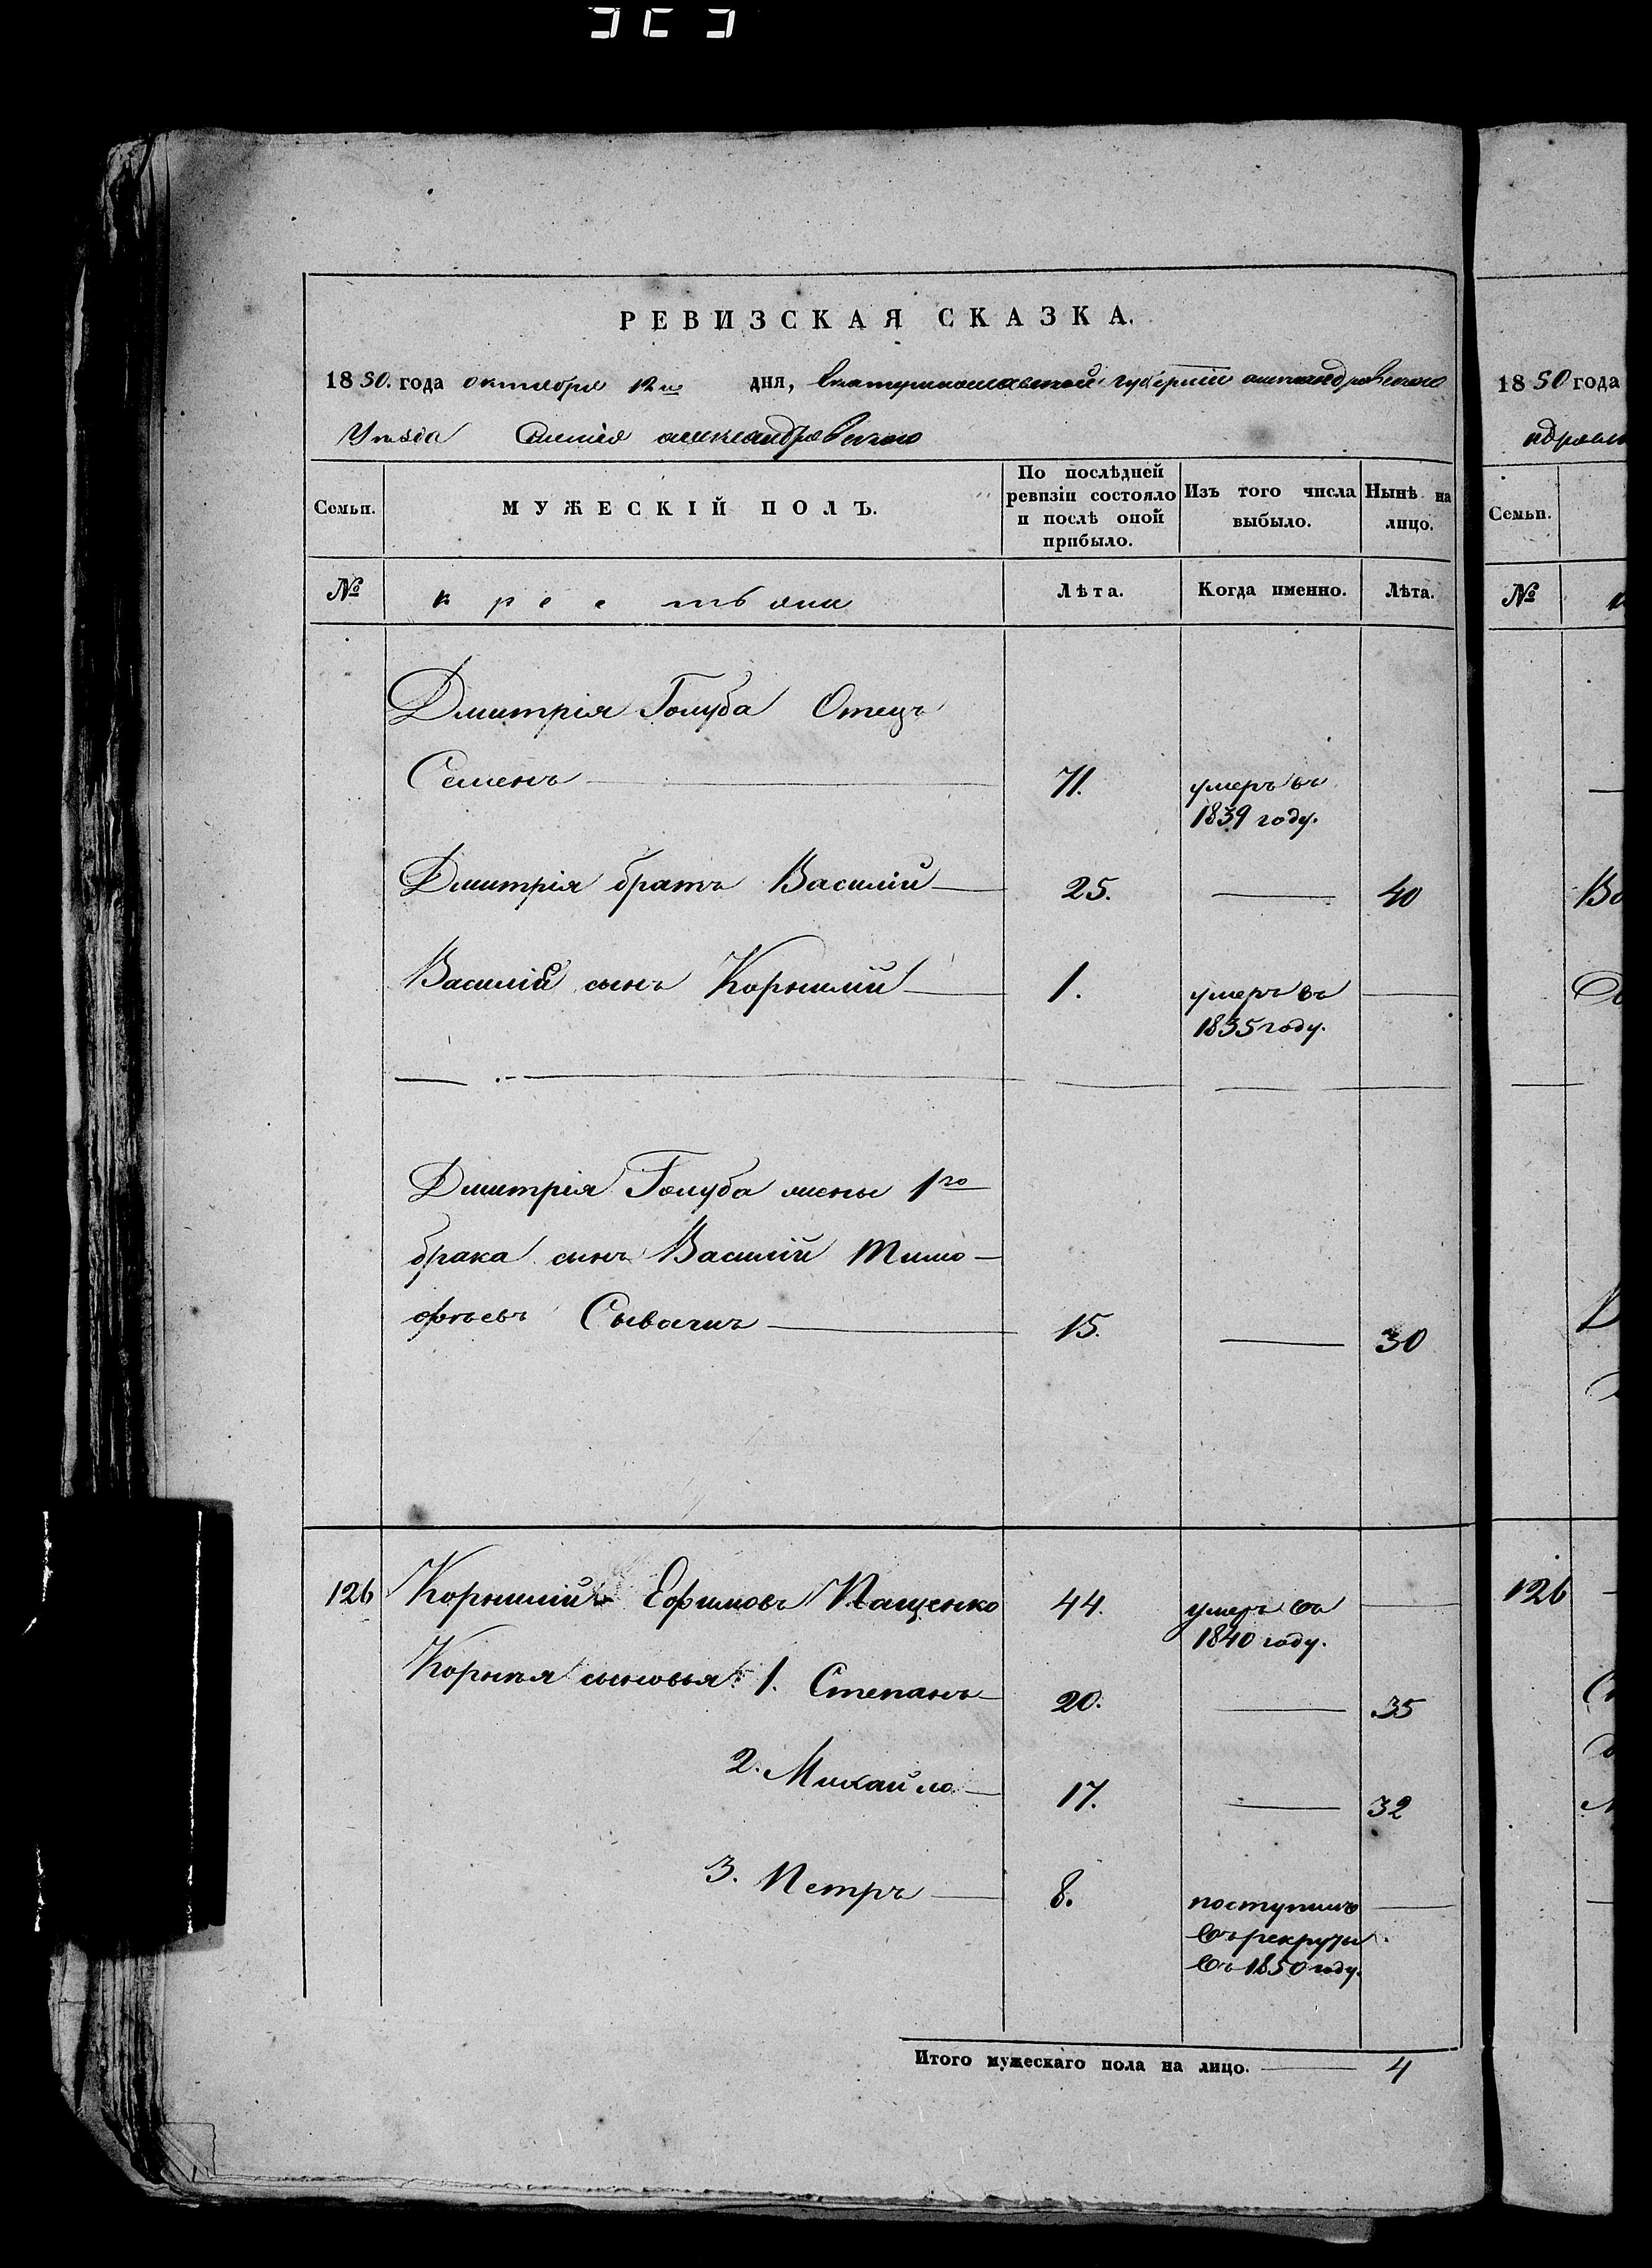 РЕВИЗСКАЯ СКАЗКА.
1850. года октября 12го дня, Екатеринославской губерніи александровского
Уѣзда Селенія александровского
Семьи. МУЖЕСКІЙ ПОЛЪ. По послѣдней ревизіи состояло и послѣ оной прибыло. Изъ того числа выбыло. Нынѣ на лицо.
№ крестьяне Лѣта. Когда именно. Лѣта.
Дмитрія Голуба Отецъ
Семенъ 71. умеръ въ
1839 году.
Дмитрія братъ Василій 25. 40
Василій сынъ Корнилій 1. умеръ въ
1835 году.
Дмитрія Голуба жены 1го
брака сынъ Василій Тимо-
фѣевъ 15. 30
126 Корнилій Ефимовъ Пащенко 44. умеръ въ
1840 году.
Корнѣя сыновья: 1. Степанъ 20. 35
2. Михайло 17. 32
3. Петръ 8. поступилъ
въ рекруты
въ 1850 году.
Итого мужескаго пола на лицо. 4
1850 года
ндровск
Семьи.
№
126